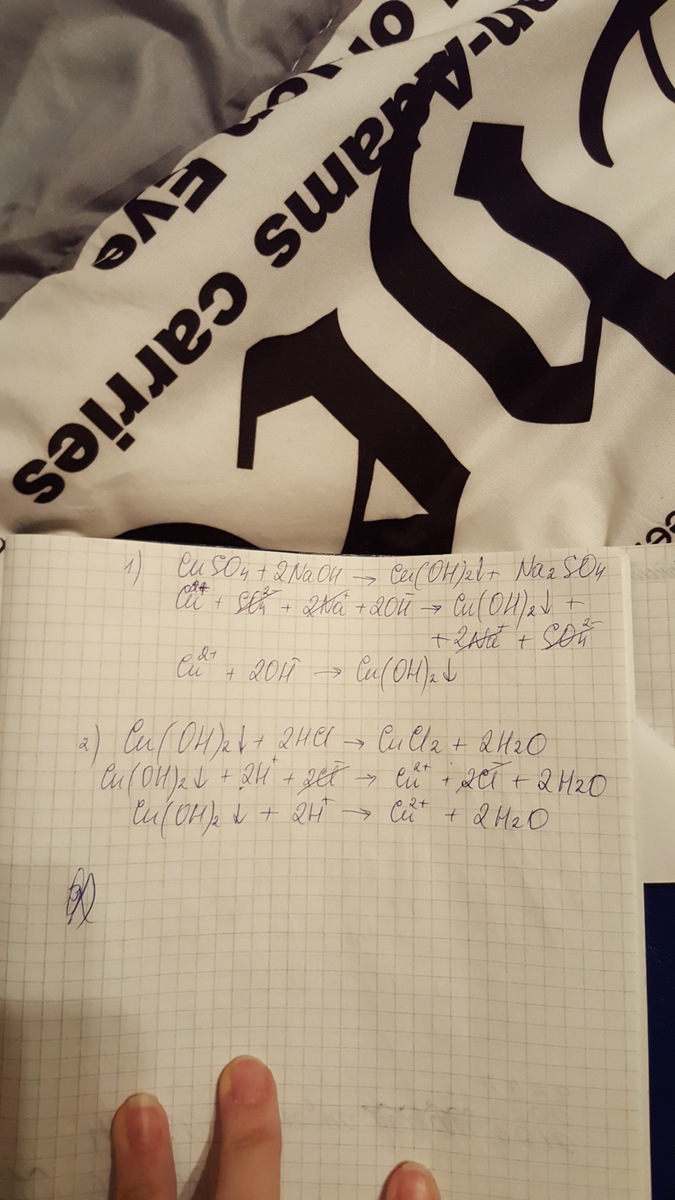 on-Adams
on Eve
carries
1) CuSO₄ + 2NaOH → Cu(OH)₂↓ + Na₂SO₄
Cu²⁺ + SO₄²⁻ + 2Na⁺ + 2OH⁻ → Cu(OH)₂↓ +
+ 2Na⁺ + SO₄²⁻
Cu²⁺ + 2OH⁻ → Cu(OH)₂↓
2) Cu(OH)₂↓ + 2HCl → CuCl₂ + 2H₂O
Cu(OH)₂↓ + 2H⁺ + 2Cl⁻ → Cu²⁺ + 2Cl⁻ + 2H₂O
Cu(OH)₂↓ + 2H⁺ → Cu²⁺ + 2H₂O